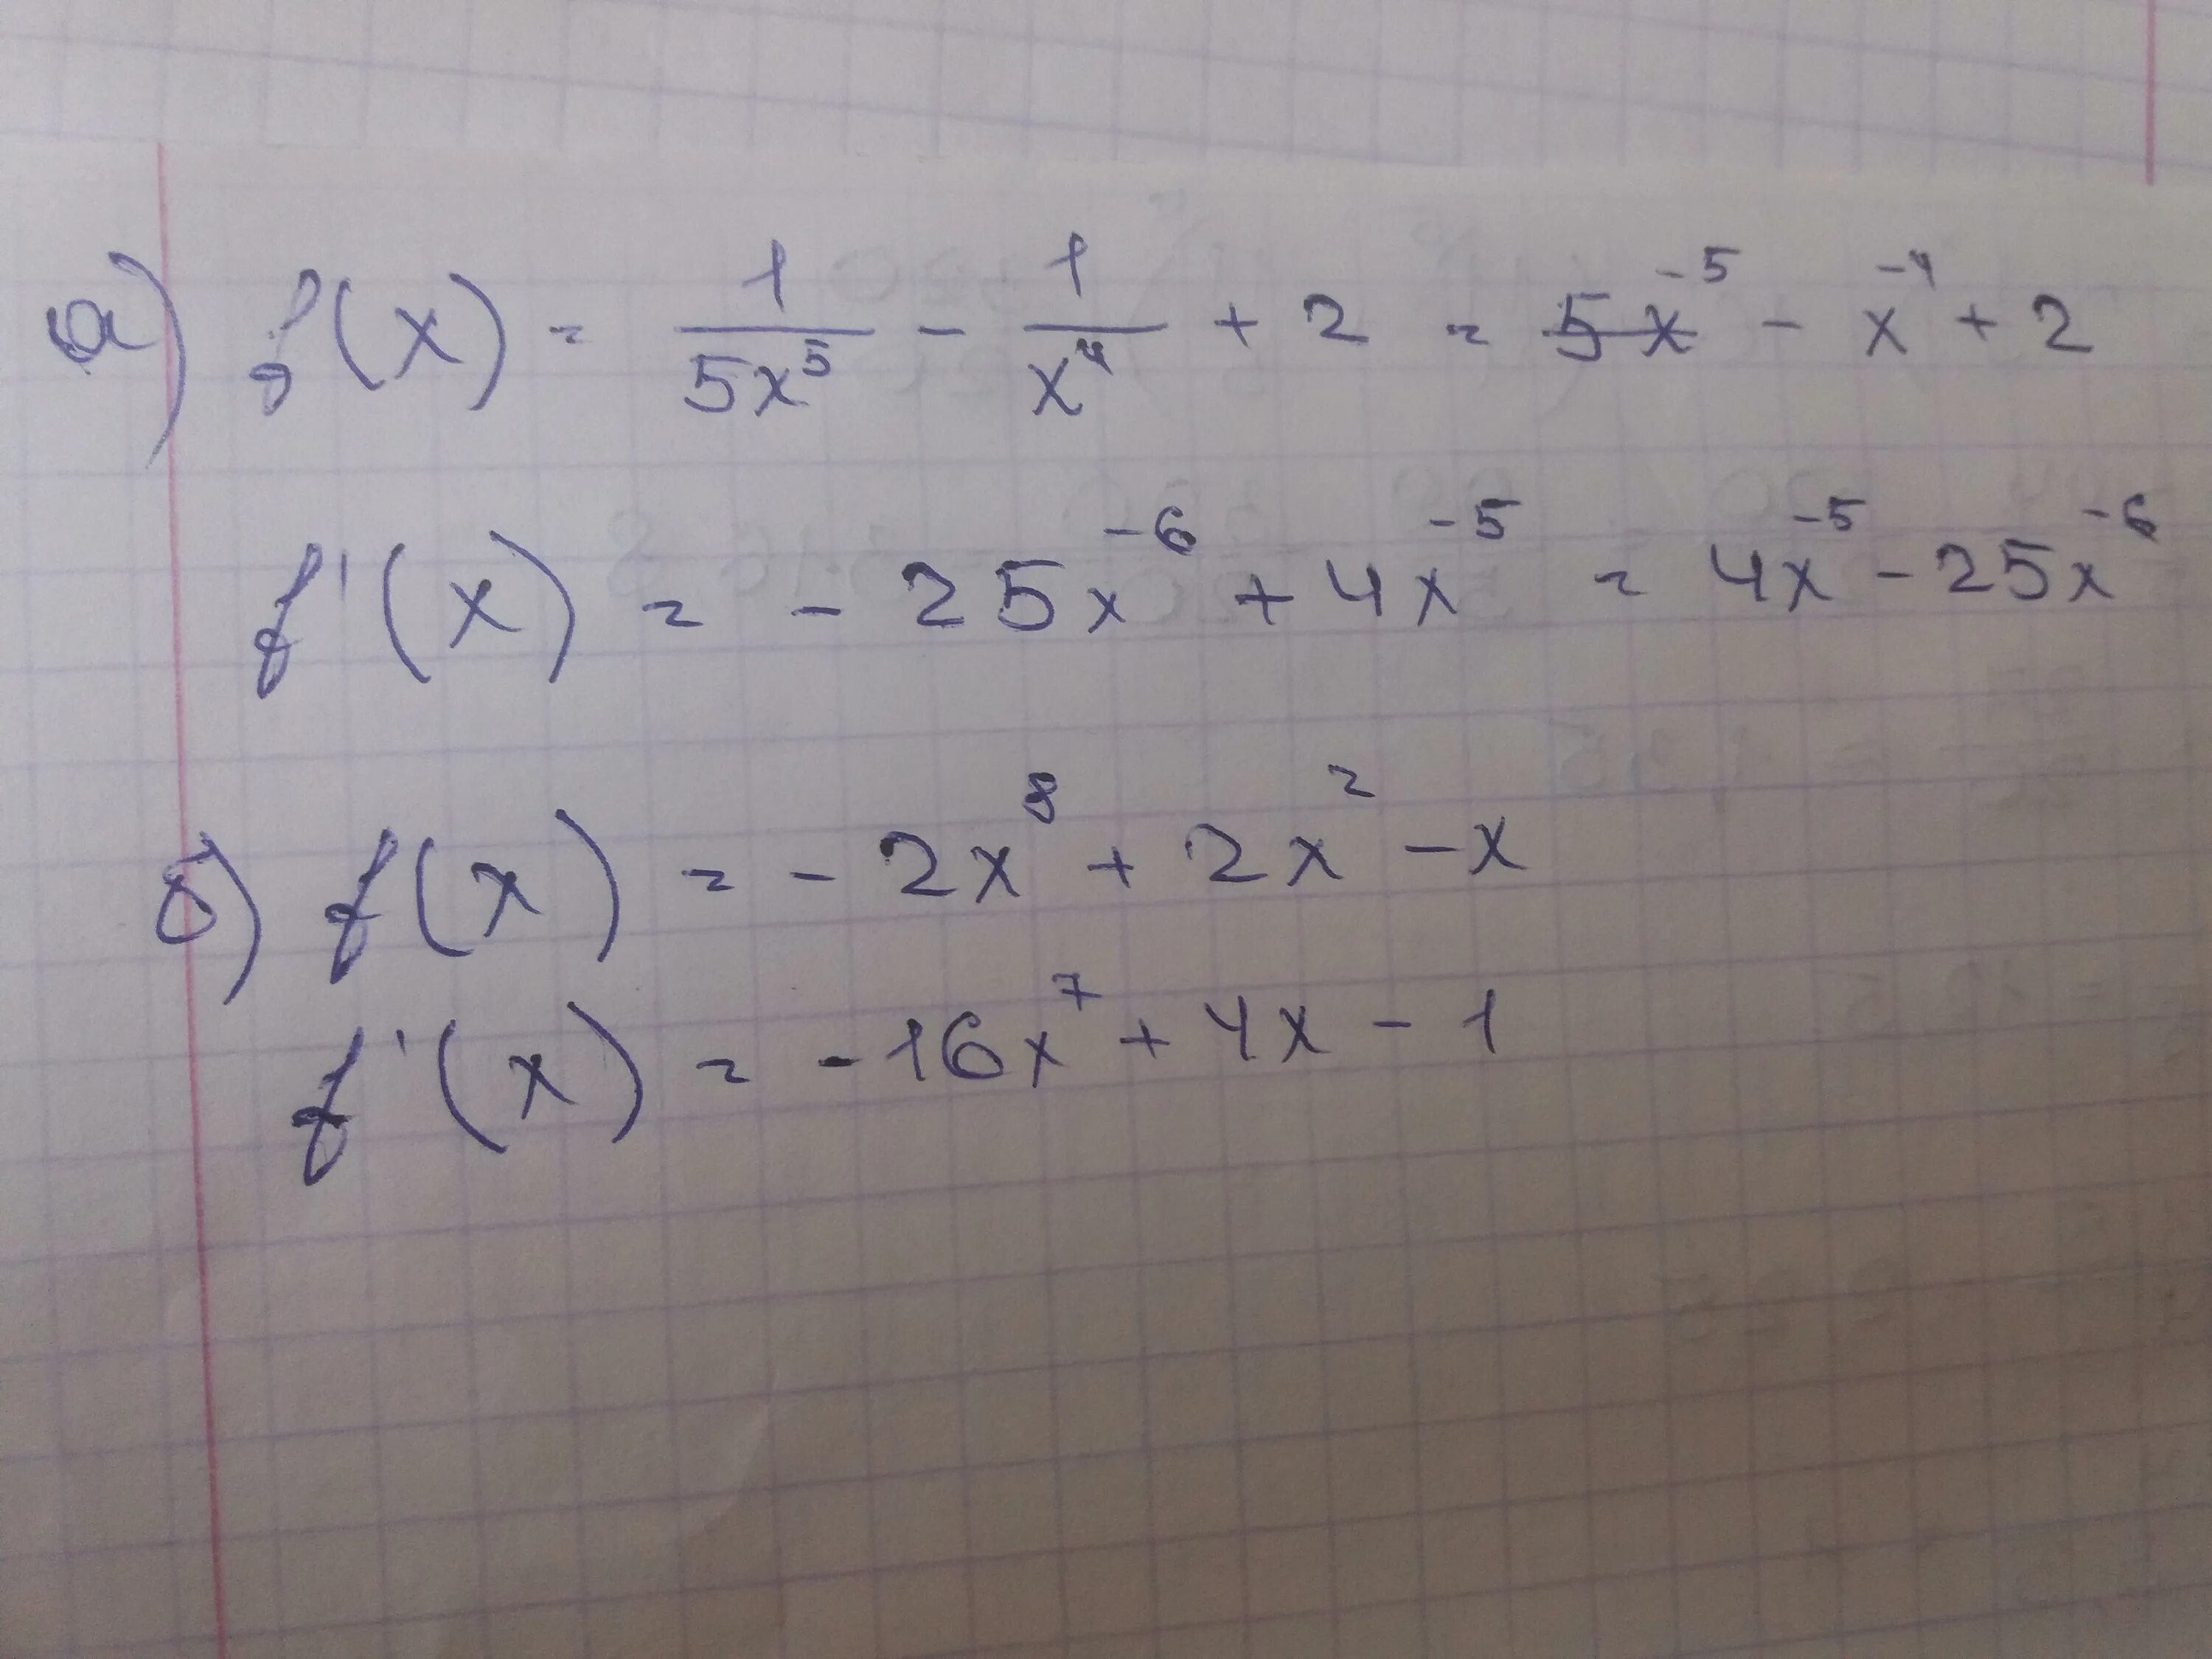 а) f(x) = 1/(5x⁵) - 1/x⁴ + 2 = 5x⁻⁵ - x⁻⁴ + 2
f'(x) = - 25x⁻⁶ + 4x⁻⁵ = 4x⁻⁵ - 25x⁻⁶
б) f(x) = - 2x⁸ + 2x² - x
f'(x) = - 16x⁷ + 4x - 1